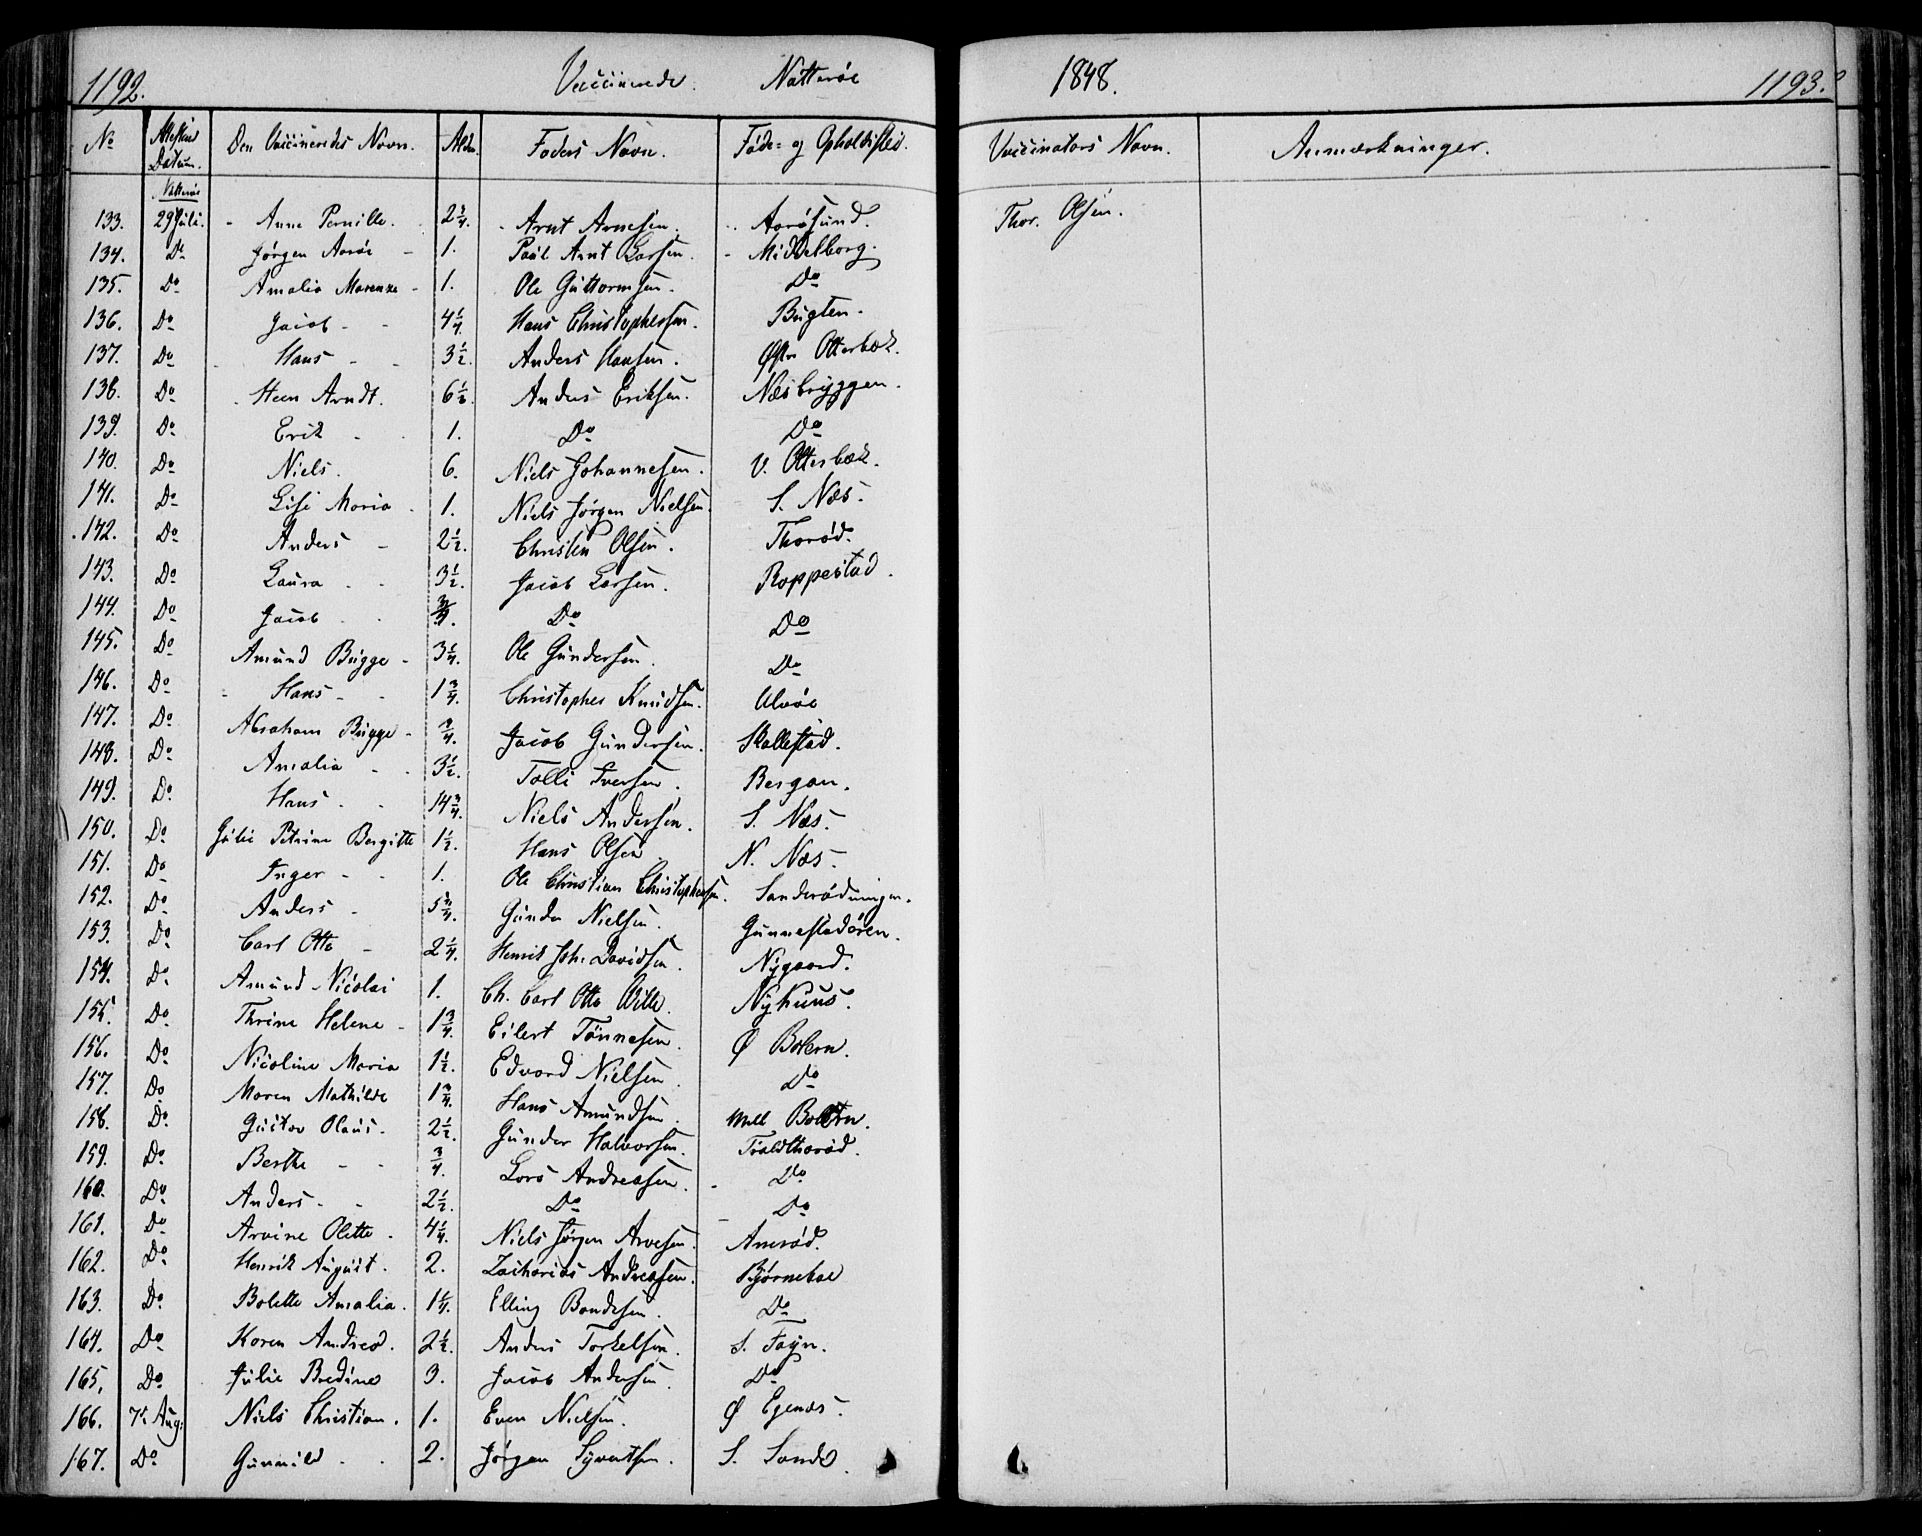 1192. Vaccinerede Nøtterøe 1848. 1193.
No Attestens Datum. Den Vaccineredes Navn. Alder. Faders Navn. Føde- og Opholdssted. Vaccinators Navn. Anmærkninger.
Nøtterøe
133. 29 Juli. Anne Pernille. 2 3/4. Arnt Arnesen. Aarøsund. Thor. Olsen.
134. Do Jørgen Aarøe 1. Paul Arnt Larsen. Middelborg.
135. Do Amalia Marenze 1. Ole Guttormsen. Do
136. Do Jacob 4 1/4. Hans Christophersen. Bugten.
137. Do Hans 3 1/2. Anders Hansen. Østr Otterbek.
138. Do Steen Arndt. 6 1/2. Anders Eriksen. Næsbryggen.
139. Do Erik 1. Do Do
140. Do Niels. 6. Niels Johannesen. V. Otterbek.
141. Do Lise Maria 1. Niels Jørgen Nielsen. S. Næs.
142. Do Anders 2 1/2. Christen Olsen. Thorød.
143. Do Laura 3 1/2. Jacob Larsen. Roppestad.
144. Do Jacob 3/4. Do Do
145. Do Amund Bugge 3 1/4. Ole Gundersen. Do
146. Do Hans 1 3/4. Christopher Knudsen. Ulvøe
147. Do Abraham Bugge 3/4. Jacob Gundersen. Skallestad.
148. Do Amalia 3 1/2. Tolli Iversen. Bergan.
149. Do Hans 14 3/4. Niels Andersen. S. Næs.
150. Do Julie Petrine Bergitte 1 1/2. Hans Olsen N. Næs.
151. Do Inger 1. Ole Christian Christophersen. Sanderødningen.
152. Do Anders 5 3/4. Gunder Nielsen. Gunnestadøren.
153. Do Carl Otto 2 1/4. Henrik Joh. Davidsen. Nygaard.
154. Do Amund Nicolai 1. Ch. Carl Otto Wille. Nyhuus.
155. Do Thrine Helene 1 3/4. Eilert Tønnesen. Ø Bolern.
156. Do Nicoline Maria 1 1/2. Edvard Nielsen. Do
157. Do Maren Mathilde 1 3/4. Hans Amundsen. Mell Bolern.
158. Do Gustav Olaus. 2 1/2. Gunder Halvorsen. Trældthorød.
159. Do Berthe 3/4. Lars Andreasen. Do
160. Do Anders 2 1/2. Do Do
161. Do Arvine Olette. 4 1/4. Niels Jørgen Arvesen. Arnerød.
162. Do Henrik August. 2. Zacharias Andreasen. Bjørnebøe
163. Do Bolette Amalia. 1 1/4. Elling Bondesen. Do
164. Do Karen Andrea. 2 1/2. Anders Torkelsen. S. Føyn.
165. Do Julie Bredine 3. Jacob Andersen Do
166. 7. Aug: Niels Christian. 1. Even Nielsen. Ø Egenæs.
167. Do Gunnild 2. Jørgen Syvertsen. S. Sande